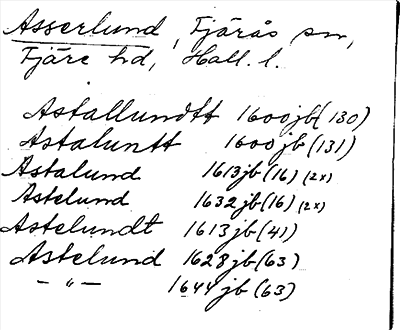 Asserlund, Fjärås sn,
Fjäre hd, Hall. l.
Astallundtt 1600 jb (130)
Astaluntt 1600 jb (131)
Astalund 1613 jb (16) (2x)
Astelund 1632 jb (16) (2x)
Astelundt 1613 jb (41)
Astelund 1628 jb (63)
– " – 1644 jb (63)